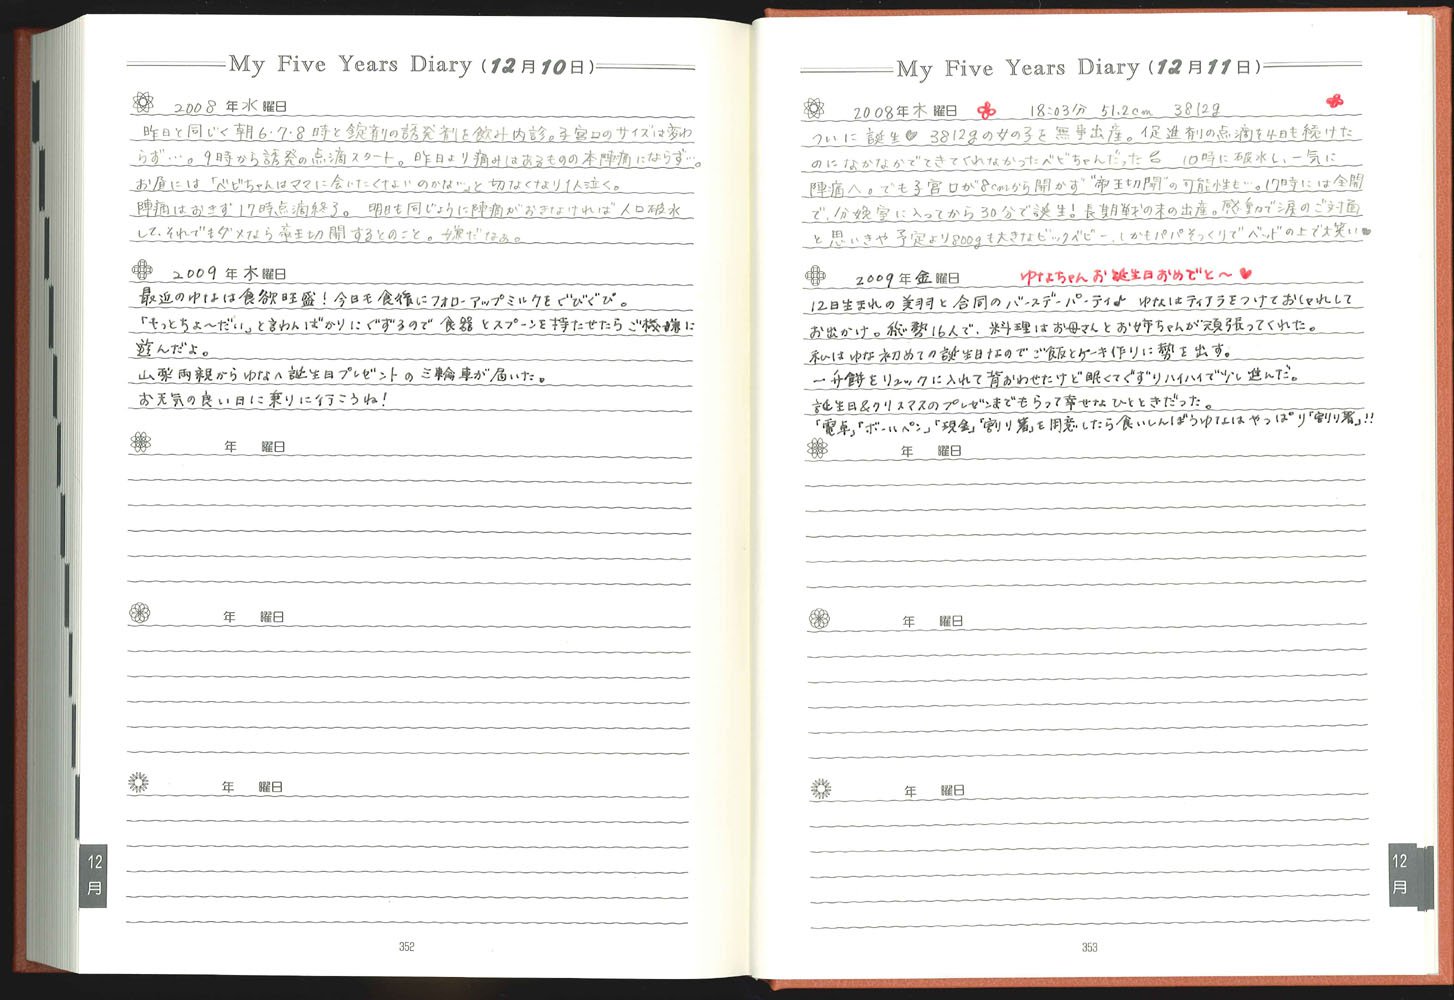 My Five Years Diary (12月10日)
2008年水曜日
昨日と同じく朝6・7・8時と錠剤の誘発剤を飲み内診。子宮口のサイズは変わ
らず…。9時から誘発の点滴スタート。昨日より痛みはあるものの本陣痛にならず…。
お昼には「ベビちゃんはママに会いたくないのかな…」と切なくなり1人泣く。
陣痛はおきず17時点滴終了。 明日も同じように陣痛がおきなければ人口破水
して、それでもダメなら帝王切開するとのこと。嫌だなぁ。
2009年木曜日
最近のゆなは食欲旺盛!今日も食後にフォローアップミルクをぐびぐび。
「もっとちょ〜だい」と言わんばかりにぐずるので食器とスプーンを持たせたらご機嫌に
遊んだよ。
山梨両親からゆなへ誕生日プレゼントの三輪車が届いた。
お天気の良い日に乗りに行こうね!
年 曜日
年 曜日
年 曜日
12
月
352
My Five Years Diary (12月11日)
2008年木曜日 18:03分 51.2cm 3812g
ついに誕生♥ 3812gの女の子を無事出産。促進剤の点滴を4日も続けた
のになかなかでてきてくれなかったベビちゃんだった 10時に破水し、一気に
陣痛へ。でも子宮口が8cmから開かず"帝王切開"の可能性も…。17時には全開
で、分娩室に入ってから30分で誕生!長期戦の末の出産。感動で涙のご対面
と思いきや予定より800gも大きなビックベビー、しかもパパそっくりでベッドの上で大笑い♥
2009年金曜日 ゆなちゃんお誕生日おめでと〜♥
12日生まれの美羽と合同のバースデーパーティ♪ ゆなはティアラをつけておしゃれして
お出かけ。総勢16人で、料理はお母さんとお姉ちゃんが頑張ってくれた。
私はゆな初めての誕生日なのでご飯とケーキ作りに勢を出す。
一升餅をリュックに入れて背おわせたけど眠くてぐずりハイハイで少し進んだ。
誕生日&クリスマスのプレゼントまでもらって幸せなひとときだった。
「電卓」「ボールペン」「現金」「割り箸」を用意したら食いしんぼうゆなはやっぱり「割り箸」!!
年 曜日
年 曜日
年 曜日
12
月
353